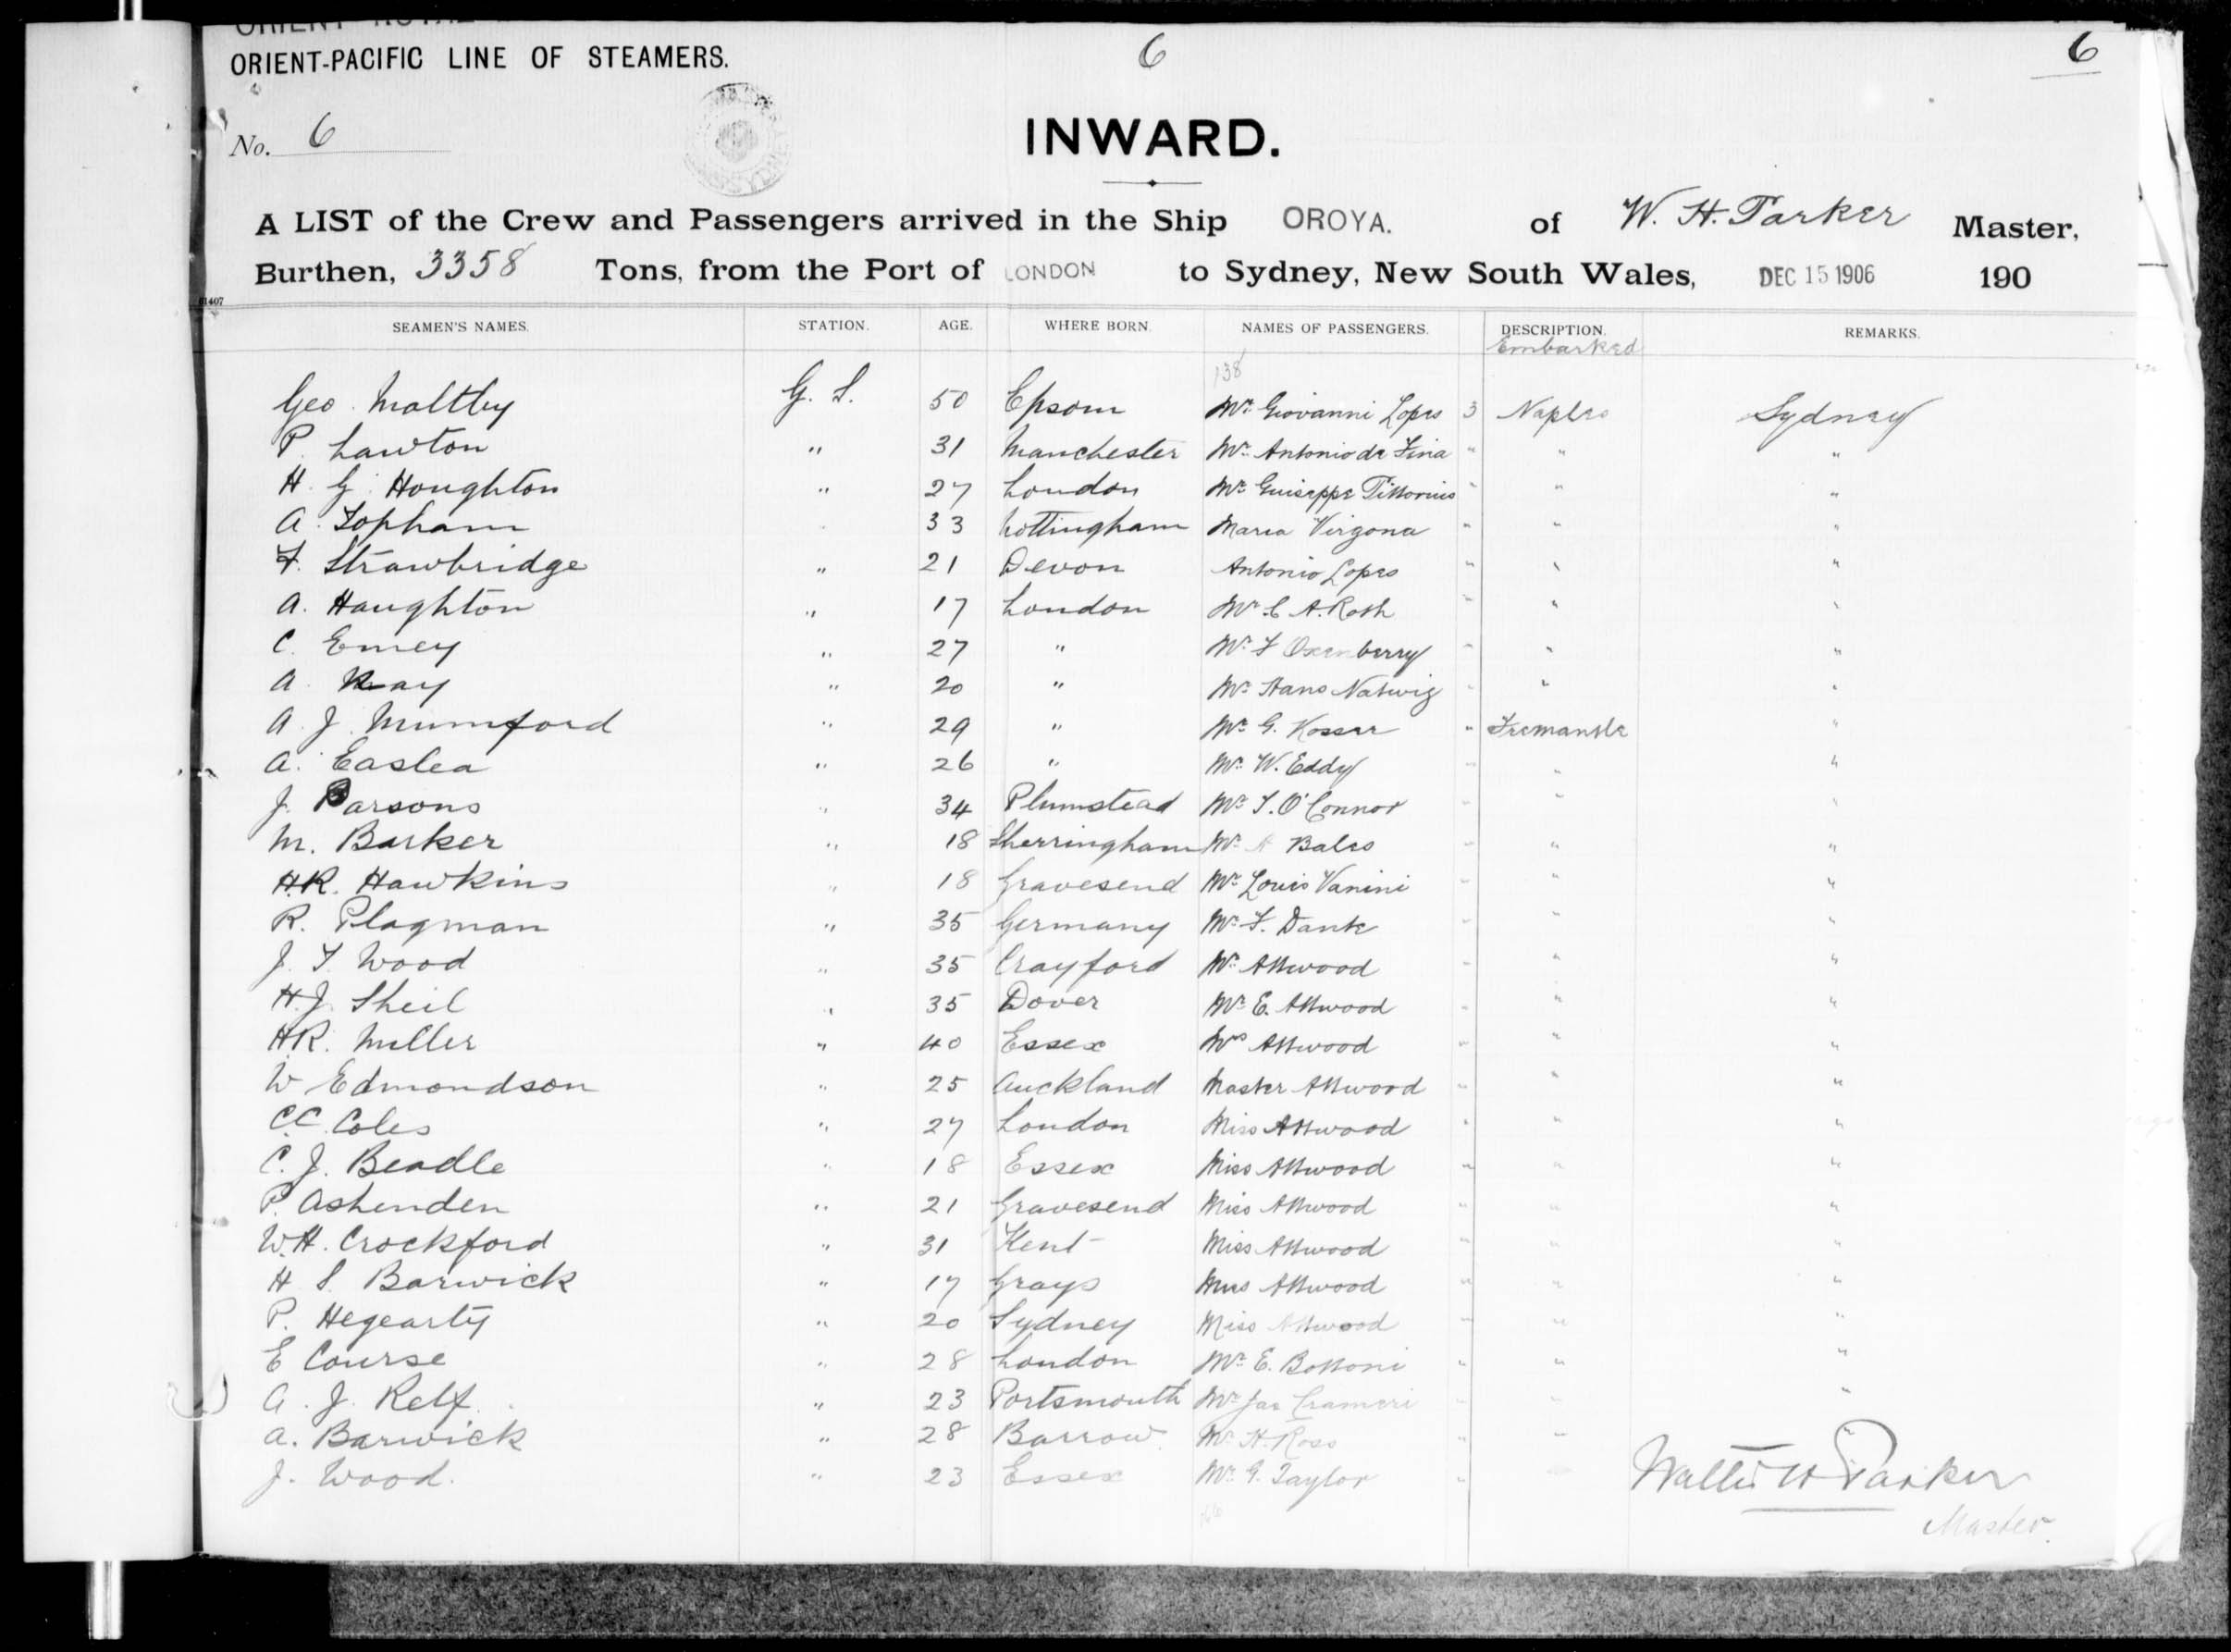 ORIENT-PACIFIC LINE OF STEAMERS.
6
6
No. 6
INWARD.
A LIST of the Crew and Passengers arrived in the Ship OROYA. of W. H. Parker Master,
Burthen, 3358 Tons, from the Port of LONDON to Sydney, New South Wales, DEC 15 1906 190
SEAMEN'S NAMES. STATION. AGE. WHERE BORN. NAMES OF PASSENGERS. DESCRIPTION. REMARKS.
Embarked
138
Geo. Maltby G. S. 50 Epsom Mr. Giovanni Lopes 3 Naples Sydney
P. Lawton " 31 Manchester Mr. Antonio de Fina " " "
H. G. Houghton " 27 London Mr. Guiseppe " " "
A. Topham 33 Nottingham Maria Virgona " " "
F. Strawbridge " 21 Devon Antonio Lopes " " "
A. Haughton " 17 London Mr. C. A. Roth " " "
C. Emey " 27 " Mr. F. Oxenberry " " "
A. Kay " 20 " Mr. Hans Natwig " " "
A. J. Mumford " 29 " Mr. G. Kosser " Fremantle "
A. Easlea " 26 " Mr. W. Eddy " " "
J. Parsons " 34 Plumstead Mr. T. O'Connor " " "
M. Barker " 18 Sherringham Mr. Bales " " "
H.R. Hawkins " 18 Gravesend Mr. Louis Vanini " " "
R. Plagman " 35 Germany Mr. F. Dank " " "
J. T. Wood " 35 Crayford Mr. Attwood " " "
H.J. Sheil " 35 Dover Mr. E. Attwood " " "
H.R. Miller " 40 Essex Mrs Attwood " " "
W Edmondson " 25 Auckland Master Attwood " " "
C.C. Coles " 27 London Miss Attwood " " "
C. J. Beadle " 18 Essex Miss Attwood " " "
P. Ashenden " 21 Gravesend Miss Attwood " " "
W.H. Crockford " 31 Kent Miss Attwood " " "
H. S. Barwick " 17 Grays Miss Attwood " " "
P. Hegearty " 20 Sydney Miss Attwood " " "
E Course " 28 London Mr. E. Bottoni " " "
A. J. Relf. " 23 Portsmouth Mr. Jas Crameri " " "
A. Barwick " 28 Barrow Mr. H. Ross " " "
J. Wood. " 23 Essex Mr. G. Taylor " "
Walter H Parker
Master.